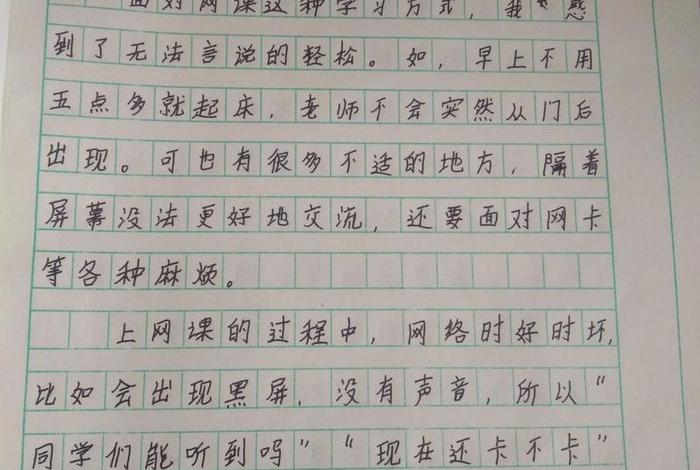 面对网课这种学习方式，我感
到了无法言说的轻松。如，早上不用
五点多就起床，老师不会突然从门后
出现。可也有很多不适的地方，隔着
屏幕没法更好地交流，还要面对网卡
等各种麻烦。
上网课的过程中，网络时好时坏，
比如会出现黑屏，没有声音，所以“
同学们能听到吗”“现在还卡不卡”